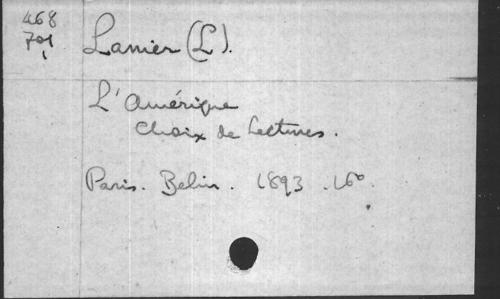 468
701
1
Lanier (L).
L'Amérique
Choix de Lectures.
Paris. Belin. 1893. 16°.